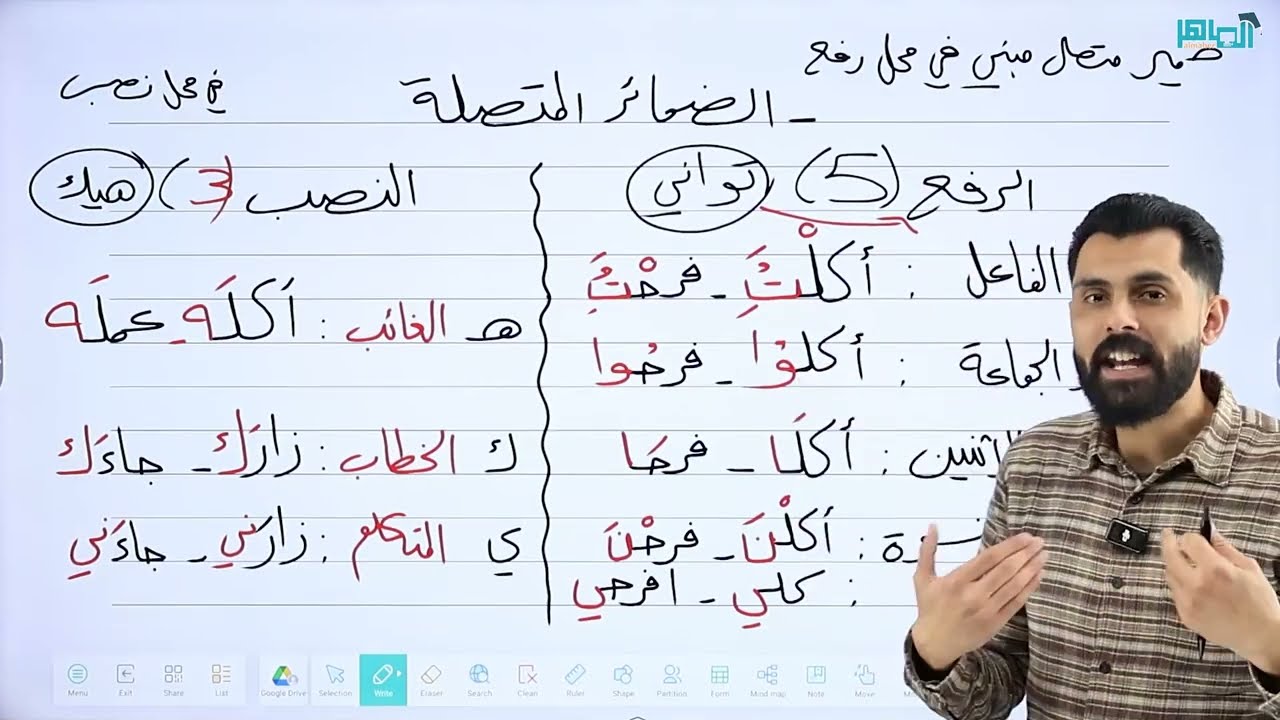 الماهر
almaher
ضمير متصل مبني في محل رفع
في محل نصب
- الضمائر المتصلة
الرفع (5) تواني
الفاعل : أكلْتُ - فرحْتُ
الجماعة : أكلوْا - فرحُوا
الاثنين : أكلَا - فرحَا
أكلْنَ - فرحْنَ
: كلي - افرحي
النصب (3) هيك
هـ الغائب : أكلَه - عملَه
ك الخطاب : زارَك - جاءَك
ي المتكلم : زارَني - جاءَني
Menu Exit Share List Google Drive Selection Write Eraser Search Clean Ruler Shape Partition Form Mind map Note Move